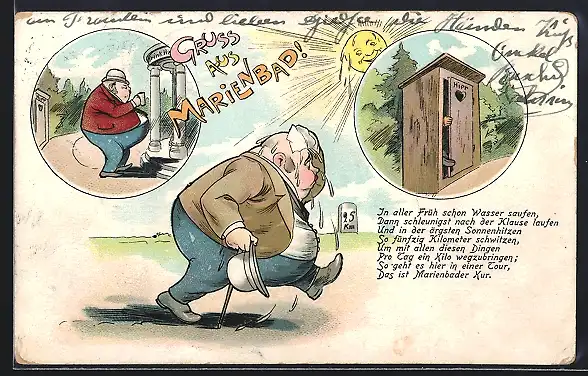 und lieben
die
GRUSS
AUS
MARIENBAD!
HIPP
25
Km
In aller Früh schon Wasser saufen,
Dann schleunigst nach der Klause laufen
Und in der ärgsten Sonnenhitzen
So fünfzig Kilometer schwitzen,
Um mit allen diesen Dingen
Pro Tag ein Kilo wegzubringen;
So geht es hier in einer Tour,
Das ist Marienbader Kur.